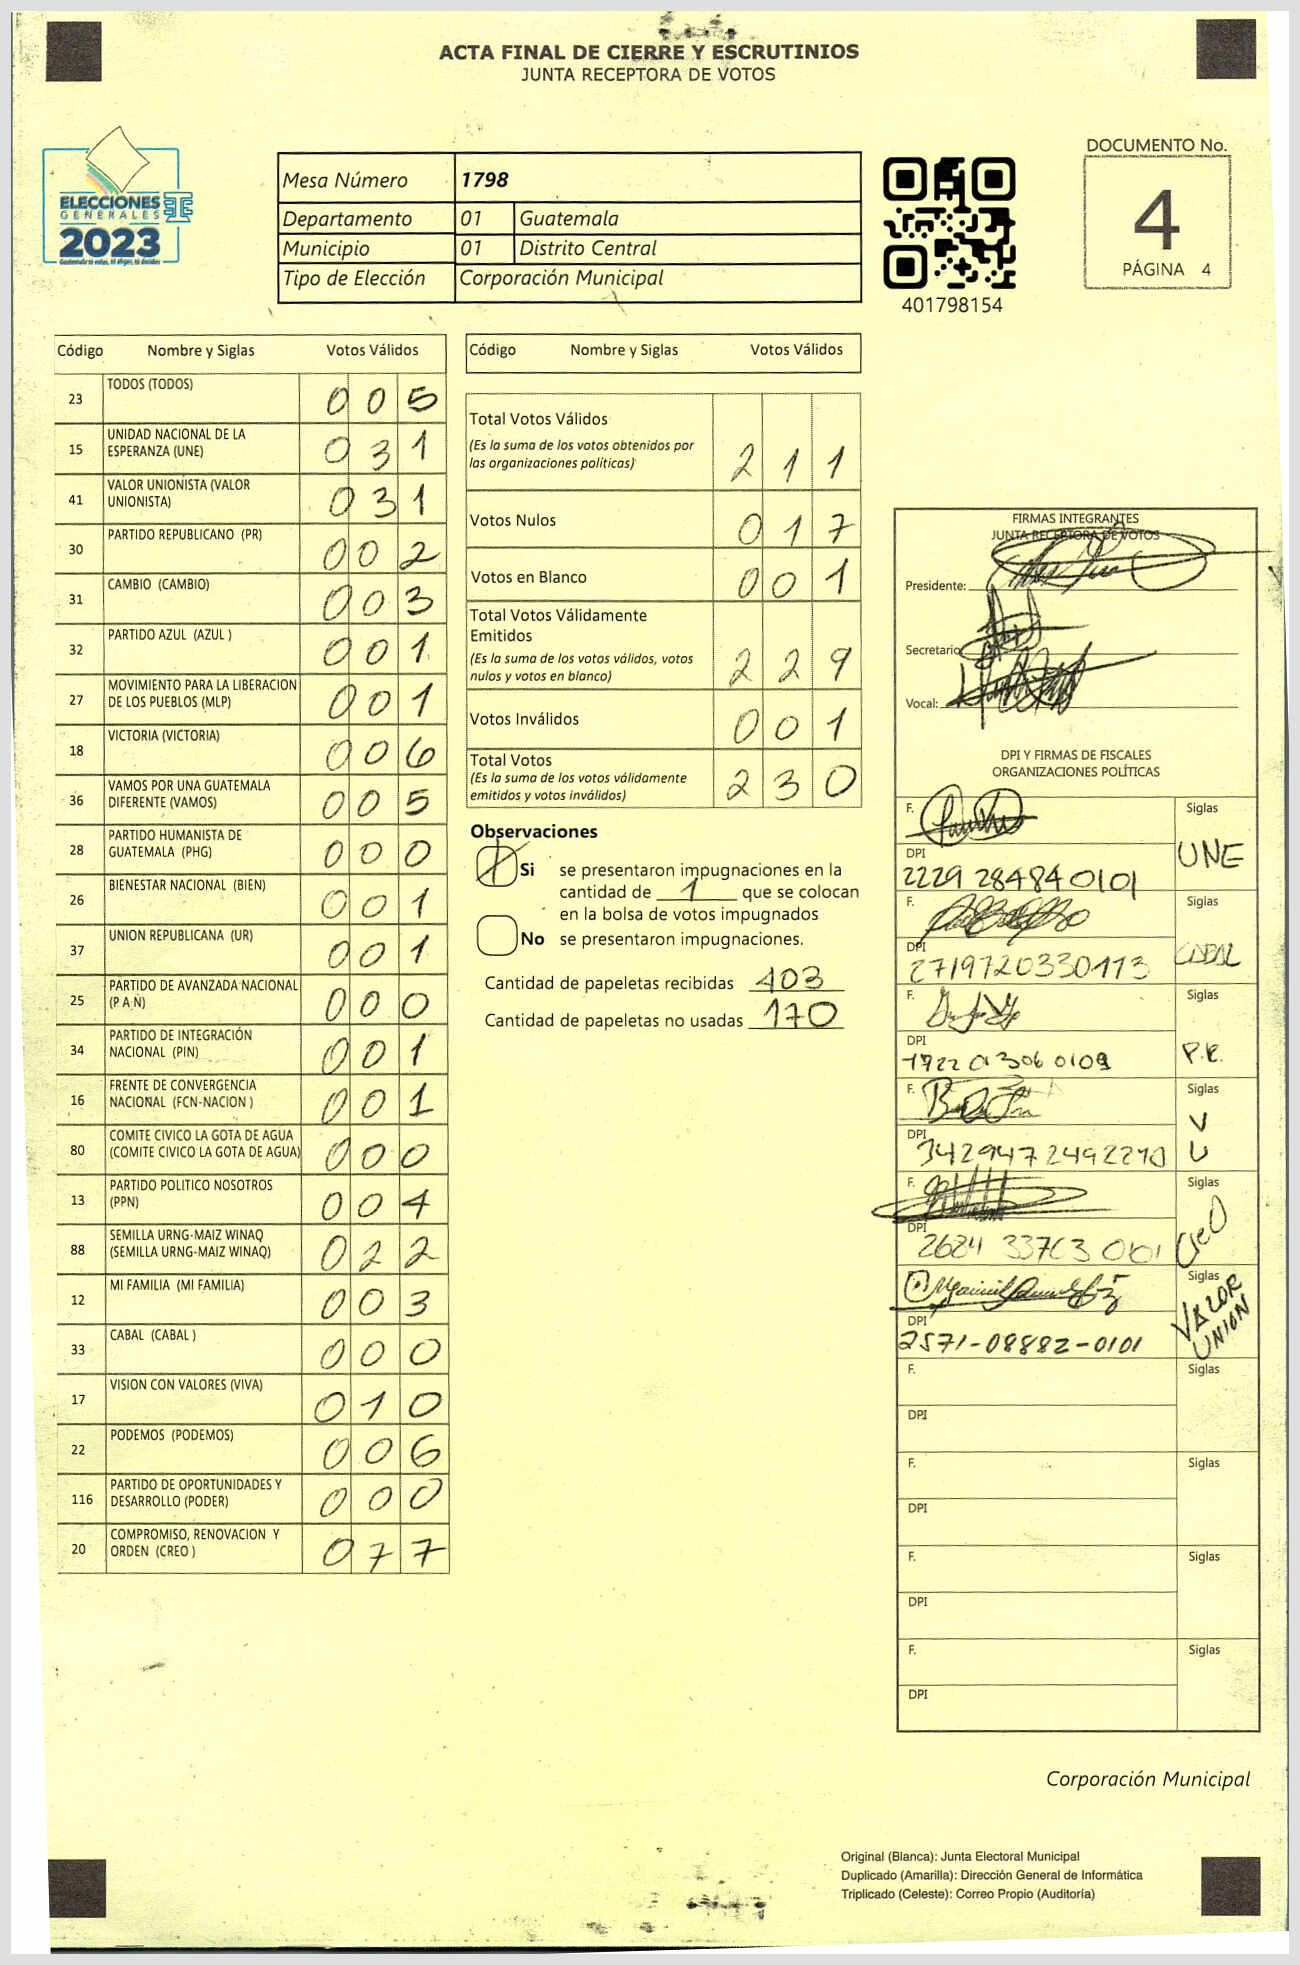 ACTA FINAL DE CIERRE Y ESCRUTINIOS
JUNTA RECEPTORA DE VOTOS
ELECCIONES
GENERALES
2023
Guatemala tú votas, tú eliges, tú decides
Mesa Número 1798
Departamento 01 Guatemala
Municipio 01 Distrito Central
Tipo de Elección Corporación Municipal
401798154
DOCUMENTO No.
4
PÁGINA 4
Código Nombre y Siglas Votos Válidos
23 TODOS (TODOS) 005
15 UNIDAD NACIONAL DE LA
ESPERANZA (UNE) 031
41 VALOR UNIONISTA (VALOR
UNIONISTA) 031
30 PARTIDO REPUBLICANO (PR) 002
31 CAMBIO (CAMBIO) 003
32 PARTIDO AZUL (AZUL ) 001
27 MOVIMIENTO PARA LA LIBERACION
DE LOS PUEBLOS (MLP) 001
18 VICTORIA (VICTORIA) 006
36 VAMOS POR UNA GUATEMALA
DIFERENTE (VAMOS) 005
28 PARTIDO HUMANISTA DE
GUATEMALA (PHG) 000
26 BIENESTAR NACIONAL (BIEN) 001
37 UNION REPUBLICANA (UR) 001
25 PARTIDO DE AVANZADA NACIONAL
(P A N) 000
34 PARTIDO DE INTEGRACIÓN
NACIONAL (PIN) 001
16 FRENTE DE CONVERGENCIA
NACIONAL (FCN-NACION ) 001
80 COMITE CIVICO LA GOTA DE AGUA
(COMITE CIVICO LA GOTA DE AGUA) 000
13 PARTIDO POLITICO NOSOTROS
(PPN) 004
88 SEMILLA URNG-MAIZ WINAQ
(SEMILLA URNG-MAIZ WINAQ) 022
12 MI FAMILIA (MI FAMILIA) 003
33 CABAL (CABAL ) 000
17 VISION CON VALORES (VIVA) 010
22 PODEMOS (PODEMOS) 006
116 PARTIDO DE OPORTUNIDADES Y
DESARROLLO (PODER) 000
20 COMPROMISO, RENOVACION Y
ORDEN (CREO ) 077
Código Nombre y Siglas Votos Válidos
Total Votos Válidos
(Es la suma de los votos obtenidos por
las organizaciones políticas) 211
Votos Nulos 017
Votos en Blanco 001
Total Votos Válidamente
Emitidos
(Es la suma de los votos válidos, votos
nulos y votos en blanco) 229
Votos Inválidos 001
Total Votos
(Es la suma de los votos válidamente
emitidos y votos inválidos) 230
Observaciones
Si se presentaron impugnaciones en la
cantidad de 1 que se colocan
en la bolsa de votos impugnados
No se presentaron impugnaciones.
Cantidad de papeletas recibidas 403
Cantidad de papeletas no usadas 170
FIRMAS INTEGRANTES
JUNTA RECEPTORA DE VOTOS
Presidente:
Secretario
Vocal:
DPI Y FIRMAS DE FISCALES
ORGANIZACIONES POLÍTICAS
F. Siglas
DPI UNE
2229 28484 0101
F. Siglas
DPI CABAL
2719720330113
F. Siglas
DPI P.R.
1722 01306 0109
F. Siglas
DPI V
3429472492210 U
F. Siglas
DPI CREO
F. Siglas
DPI VALOR
UNION
2571-08882-0101
F. Siglas
DPI
F. Siglas
DPI
F. Siglas
DPI
F. Siglas
DPI
Corporación Municipal
Original (Blanca): Junta Electoral Municipal
Duplicado (Amarilla): Dirección General de Informática
Triplicado (Celeste): Correo Propio (Auditoría)